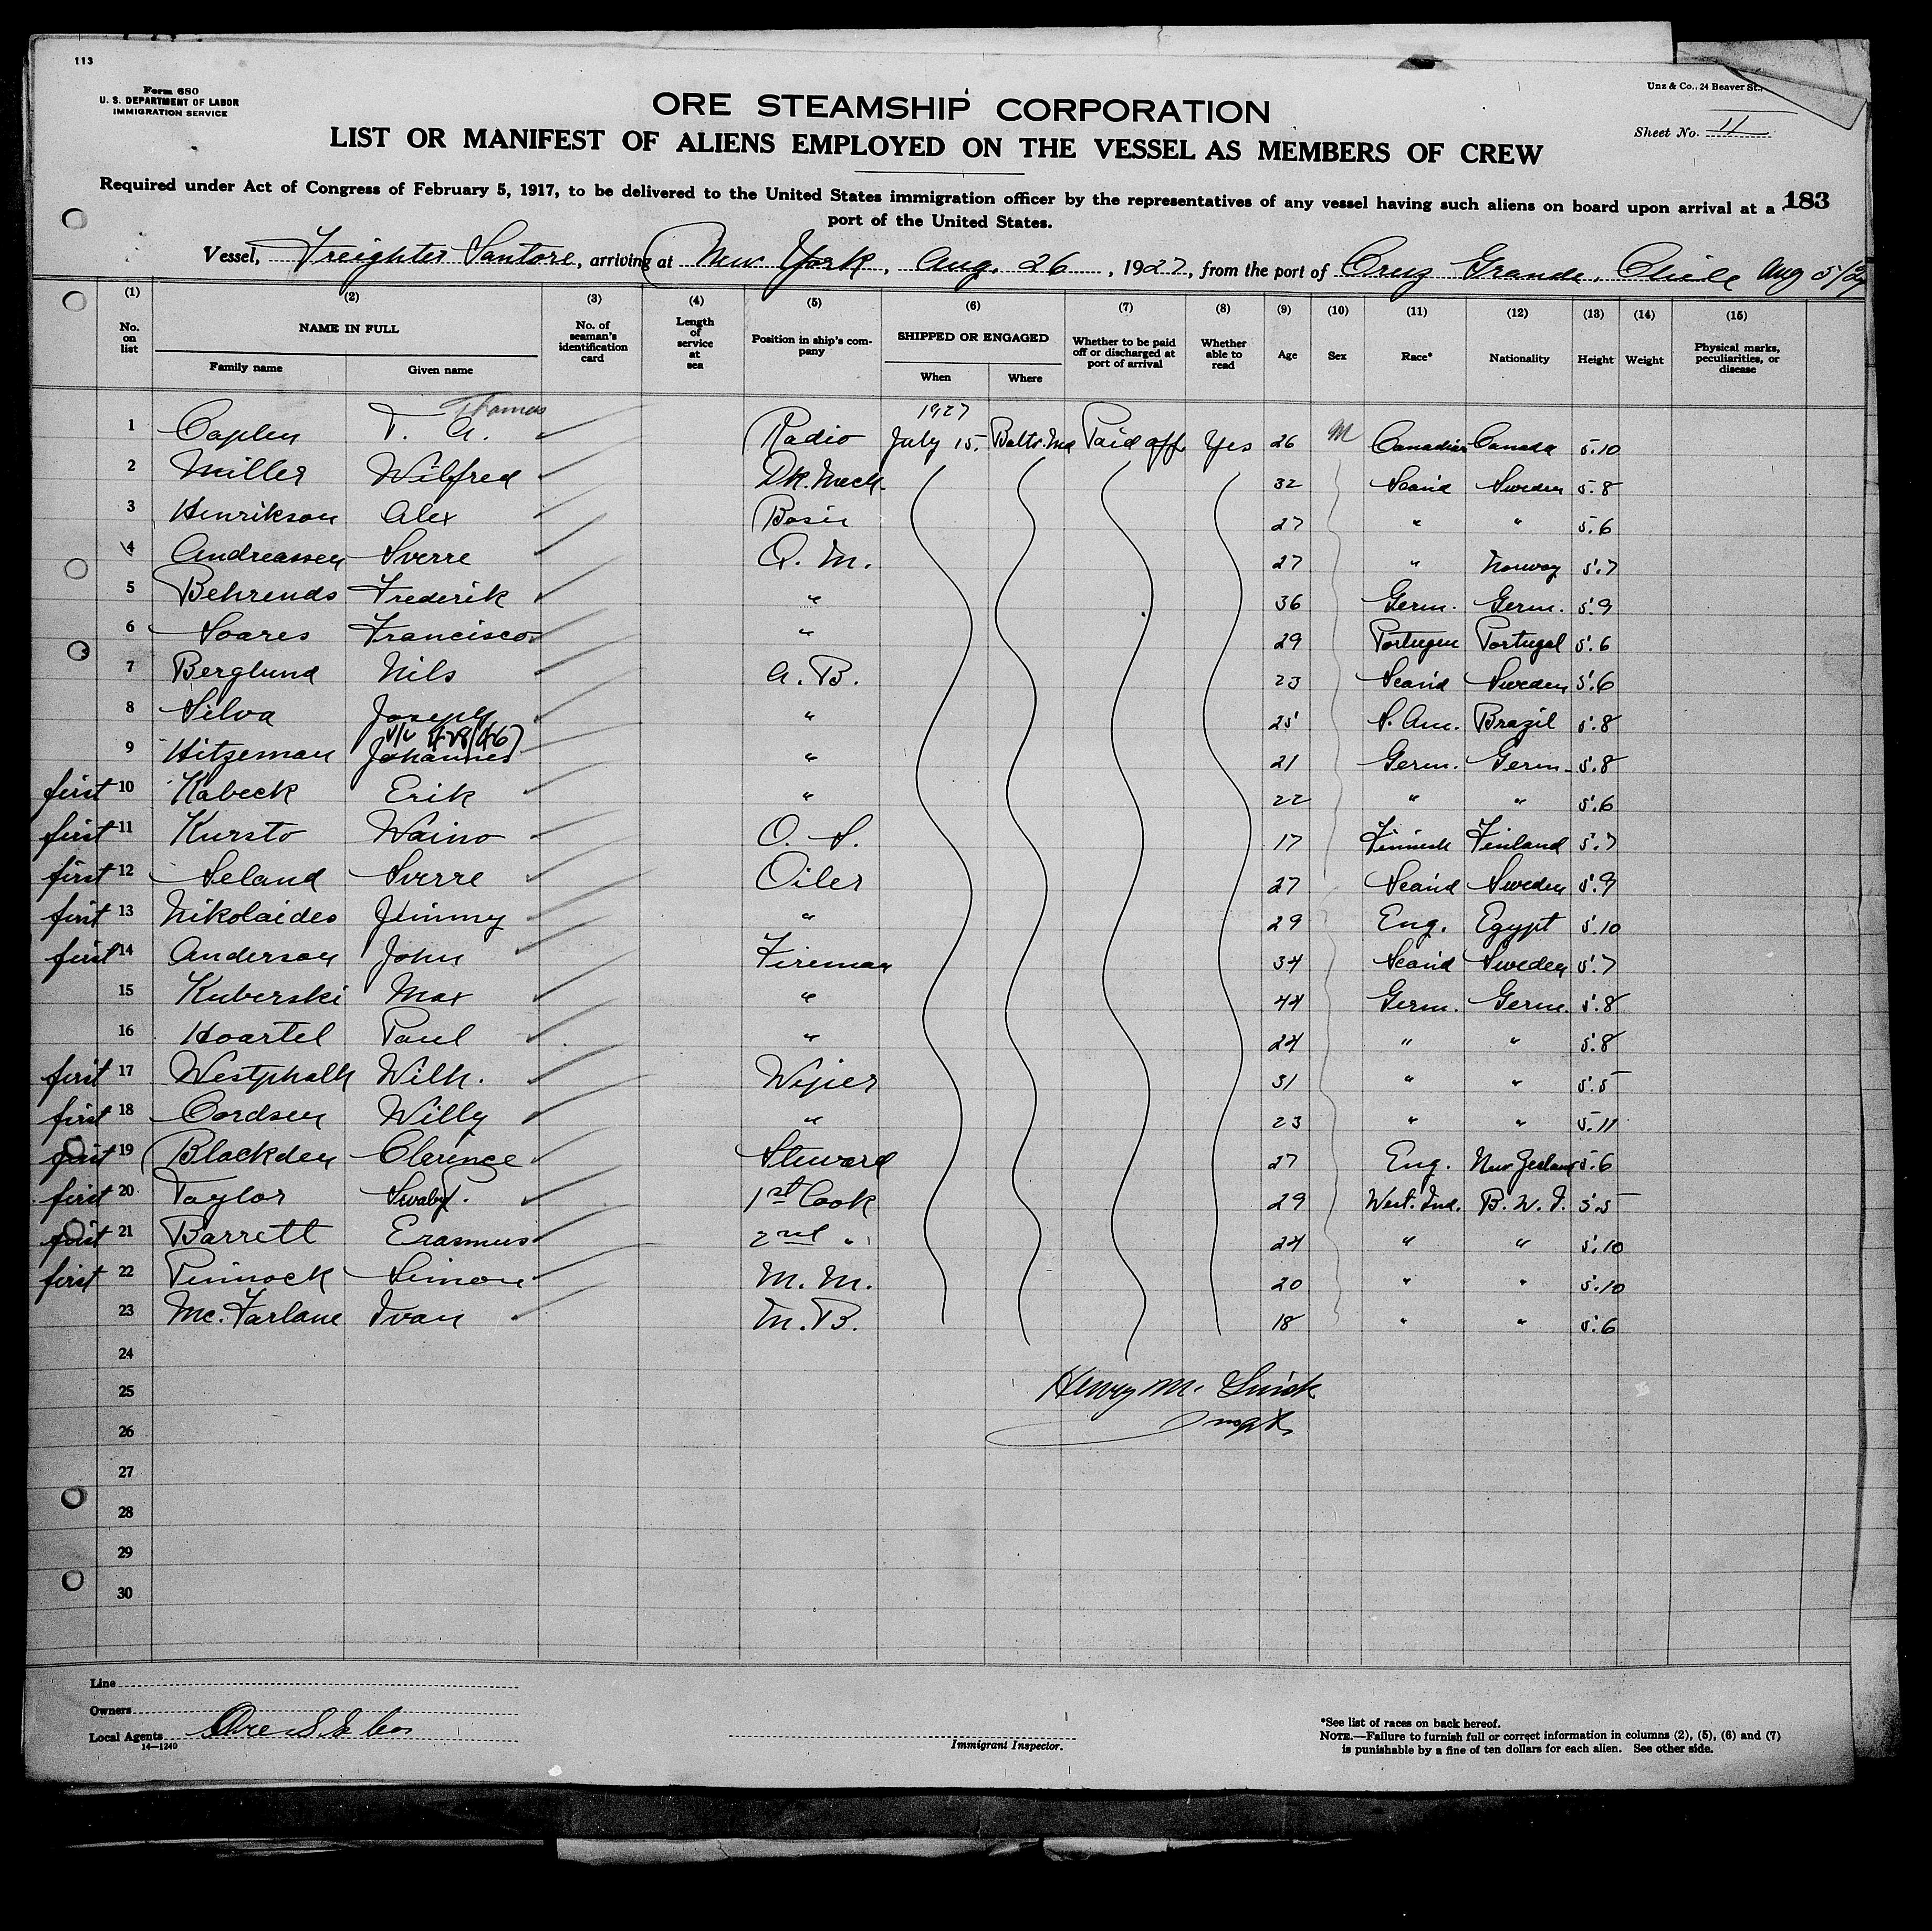 113
Form 680
U. S. DEPARTMENT OF LABOR
IMMIGRATION SERVICE
Unz & Co., 24 Beaver St.,
ORE STEAMSHIP CORPORATION
Sheet No. II
LIST OR MANIFEST OF ALIENS EMPLOYED ON THE VESSEL AS MEMBERS OF CREW
Required under Act of Congress of February 5, 1917, to be delivered to the United States immigration officer by the representatives of any vessel having such aliens on board upon arrival at a
port of the United States.
183
Vessel, Freighter Santore, arriving at New York, Aug. 26, 1927, from the port of Cruz Grande, Chile Aug 5/27
(1) (2) (3) (4) (5) (6) (7) (8) (9) (10) (11) (12) (13) (14) (15)
No. on list NAME IN FULL No. of seaman's identification card Length of service at sea Position in ship's company SHIPPED OR ENGAGED Whether to be paid off or discharged at port of arrival Whether able to read Age Sex Race* Nationality Height Weight Physical marks, peculiarities, or disease
Family name Given name When Where
Thomas 1927
1 Caplen T. A. Radio July 15. Balto. Md Paid off Yes 26 M Canadian Canada 5.10
2 Miller Wilfred Dk. Mech. 32 Scand Sweden 5.8
3 Henrikson Alex Bosn 27 " " 5.6
4 Andreassen Sverre Q. M. 27 " Norway 5.7
5 Behrends Frederik " 36 Germ. Germ. 5.9
6 Soares Francisco " 29 Portugee Portugal 5.6
7 Berglund Nils A. B. 23 Scand Sweden 5.6
8 Silva Joseph " 25 S. Am. Brazil 5.8
9 Hitzeman Johannes " 21 Germ. Germ. 5.8
first 10 Kabeck Erik " 22 " " 5.6
first 11 Kursto Waino O. S. 17 Finnish Finland 5.7
first 12 Seland Sverre Oiler 27 Scand Sweden 5.9
first 13 Nikolaides Jimmy " 29 Eng. Egypt 5.10
first 14 Anderson John Fireman 34 Scand Sweden 5.7
15 Kuberski Max " 44 Germ. Germ. 5.8
16 Hoartel Paul " 24 " " 5.8
first 17 Westphalh Wilh. Wiper 31 " " 5.5
first 18 Cordsen Willy " 23 " " 5.11
first 19 Blackden Clarence Steward 27 Eng. New Zealand 5.6
first 20 Taylor Swaby. 1st Cook 29 West. Ind. B. W. I. 5.5
first 21 Barrett Erasmus 2nd " 24 " " 5.10
first 22 Pinnock Simon M. M. 20 " " 5.10
23 Mc. Farlane Ivan M. B. 18 " " 5.6
24
25 Henry M.
26
27
28
29
30
Line
Owners
Local Agents Ore S.S. Co.
14—1240
Immigrant Inspector.
*See list of races on back hereof.
NOTE.—Failure to furnish full or correct information in columns (2), (5), (6) and (7)
is punishable by a fine of ten dollars for each alien. See other side.